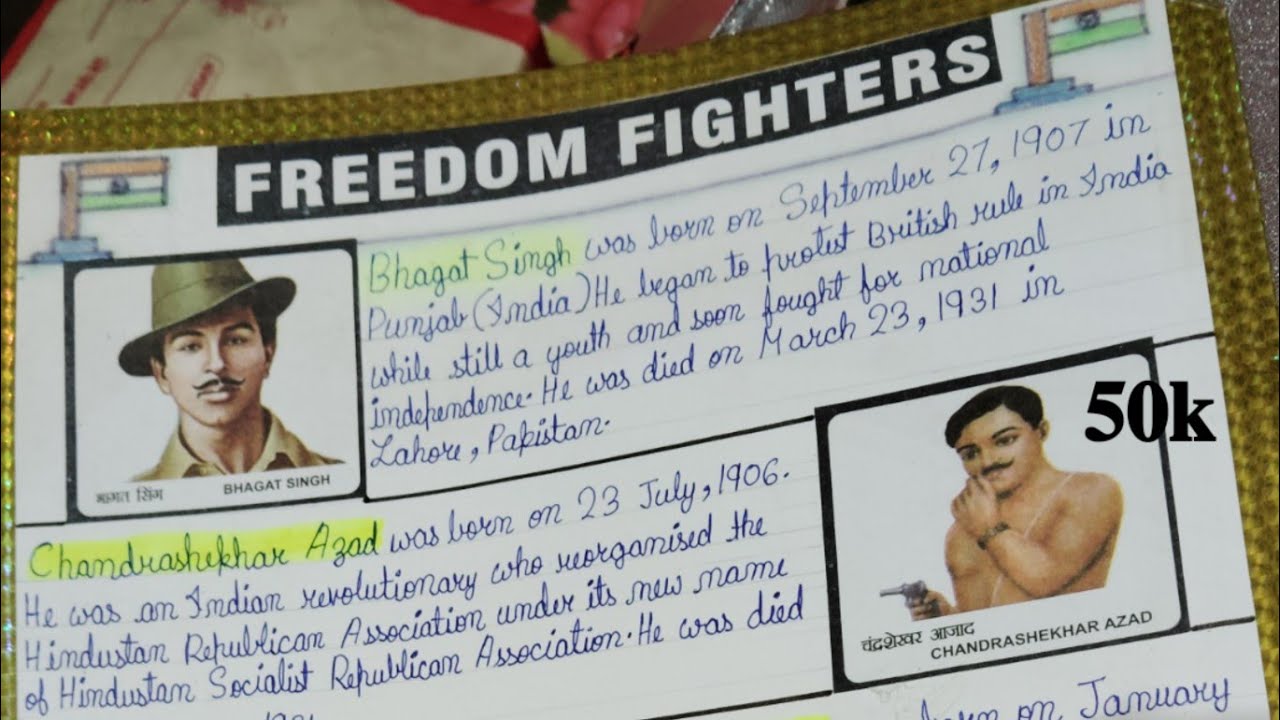 FREEDOM FIGHTERS
Bhagat Singh was born on September 27, 1907 in
Punjab (India) He began to protest British rule in India
while still a youth and soon fought for national
independence. He was died on March 23, 1931 in
Lahore, Pakistan.
भगत सिंग BHAGAT SINGH
50k
Chandrashekhar Azad was born on 23 July, 1906.
He was an Indian revolutionary who reorganised the
Hindustan Republican Association under its new name
of Hindustan Socialist Republican Association. He was died
चंद्रशेखर आजाद
CHANDRASHEKHAR AZAD
born on January